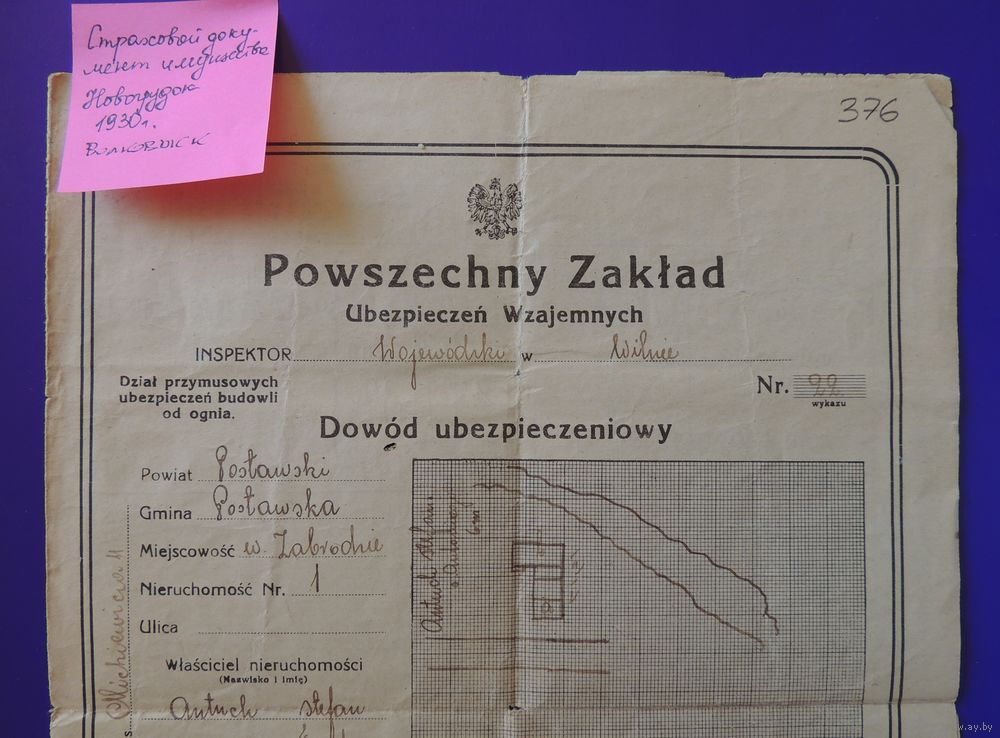 Страховой доку-
мент имущества
Новогрудок
1930г.
376
Powszechny Zakład
Ubezpieczeń Wzajemnych
INSPEKTOR Wojewódzki w Wilnie
Dział przymusowych
ubezpieczeń budowli
od ognia.
Nr. 22
wykazu
Dowód ubezpieczeniowy
Powiat Postawski
Gmina Postawska
Miejscowość w. Zabrodzie
Nieruchomość Nr. 1
Ulica
Właściciel nieruchomości
(Nazwisko i imię)
Antuch Stefan
Antuch Stefan
6 m
Mickiewicza 11
w.ay.by